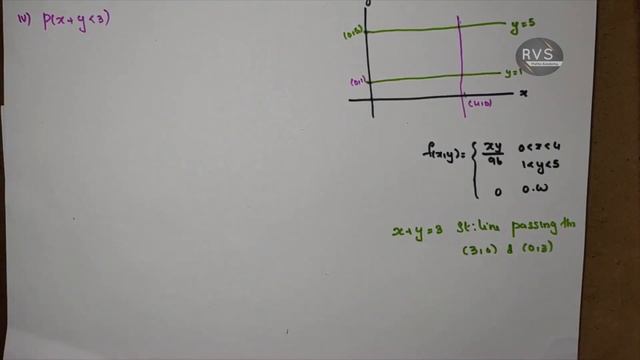 iv) P(x+y<3)
y
(0,5)
y=5
RVS
(0,1)
y=1
x
(4,0)
f(x,y)= { xy/96 0<x<4
1<y<5
0 0.w
x+y=3 st:line passing thro
(3,0) & (0,3)